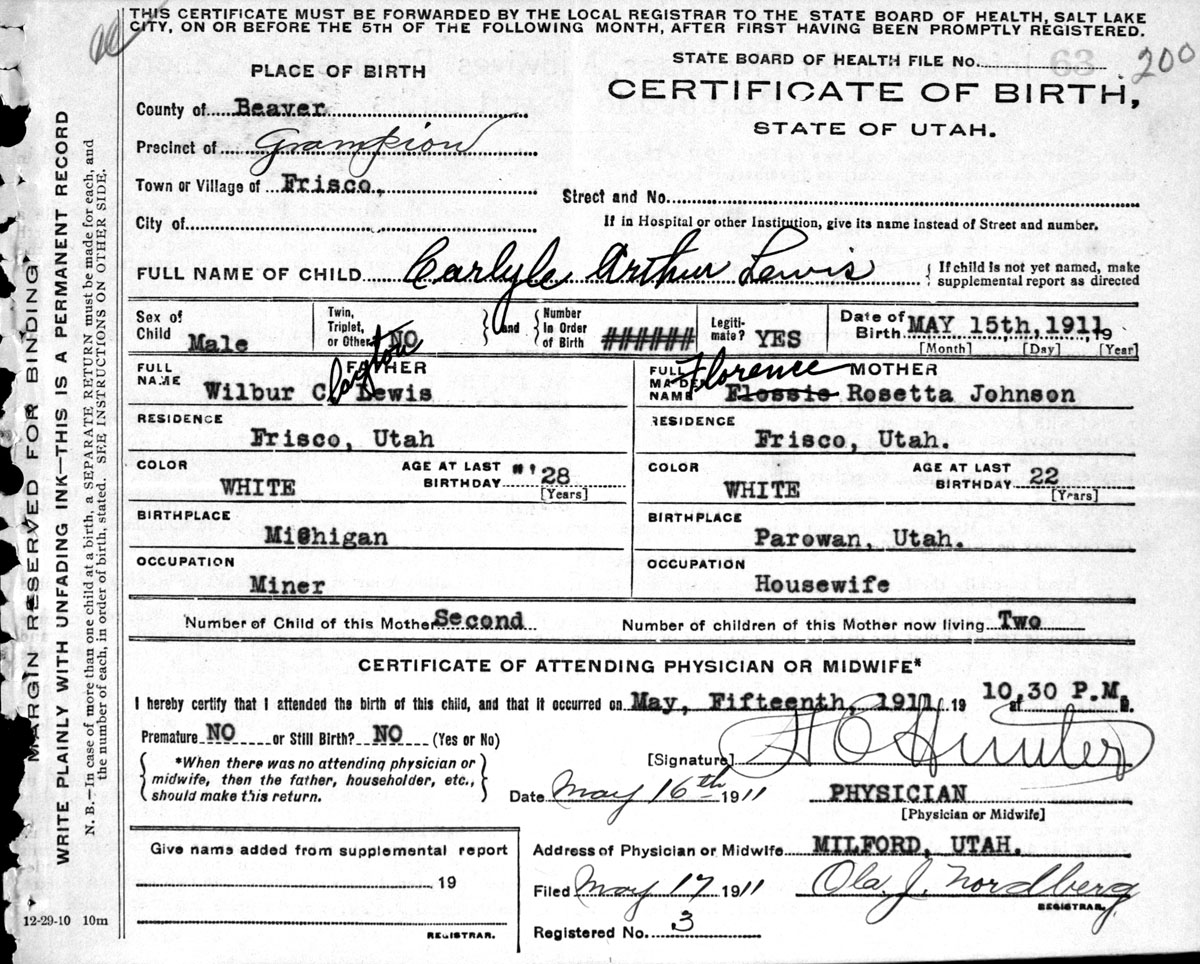 THIS CERTIFICATE MUST BE FORWARDED BY THE LOCAL REGISTRAR TO THE STATE BOARD OF HEALTH, SALT LAKE
CITY, ON OR BEFORE THE 5TH OF THE FOLLOWING MONTH, AFTER FIRST HAVING BEEN PROMPTLY REGISTERED.
STATE BOARD OF HEALTH FILE No. 200
PLACE OF BIRTH
CERTIFICATE OF BIRTH,
STATE OF UTAH.
County of Beaver
Precinct of Grampion
Town or Village of Frisco,
Street and No.
City of
If in Hospital or other Institution, give its name instead of Street and number.
FULL NAME OF CHILD Carlyle Arthur Lewis { If child is not yet named, make
supplemental report as directed
Sex of Child Male
Twin, Triplet, or Other NO
} and {
Number In Order of Birth ######
Legiti-mate? YES
Date of Birth MAY 15th, 1911, 19
[Month] [Day] [Year]
FATHER
FULL NAME Wilbur Clayton Lewis
MOTHER
FULL MAIDEN NAME Florence Flossie Rosetta Johnson
RESIDENCE
Frisco, Utah
RESIDENCE
Frisco, Utah.
COLOR
WHITE
AGE AT LAST BIRTHDAY 28
[Years]
COLOR
WHITE
AGE AT LAST BIRTHDAY 22
[Years]
BIRTHPLACE
Michigan
BIRTHPLACE
Parowan, Utah.
OCCUPATION
Miner
OCCUPATION
Housewife
Number of Child of this Mother Second
Number of children of this Mother now living Two
CERTIFICATE OF ATTENDING PHYSICIAN OR MIDWIFE*
I hereby certify that I attended the birth of this child, and that it occurred on May, Fifteenth, 1911 19 at 10.30 P.M.
Premature NO or Still Birth? NO (Yes or No)
[Signature] Hunter
{ *When there was no attending physician or
midwife, then the father, householder, etc.,
should make this return. }
Date May 16th 1911
PHYSICIAN
[Physician or Midwife]
Give name added from supplemental report
19
REGISTRAR.
Address of Physician or Midwife MILFORD, UTAH.
Filed May 17 1911
Ola. J. Nordberg
REGISTRAR.
Registered No. 3
12-29-10 10m
MARGIN RESERVED FOR BINDING
WRITE PLAINLY WITH UNFADING INK—THIS IS A PERMANENT RECORD
N. B.—In case of more than one child at a birth, a SEPARATE RETURN must be made for each, and
the number of each, in order of birth, stated. SEE INSTRUCTIONS ON OTHER SIDE.